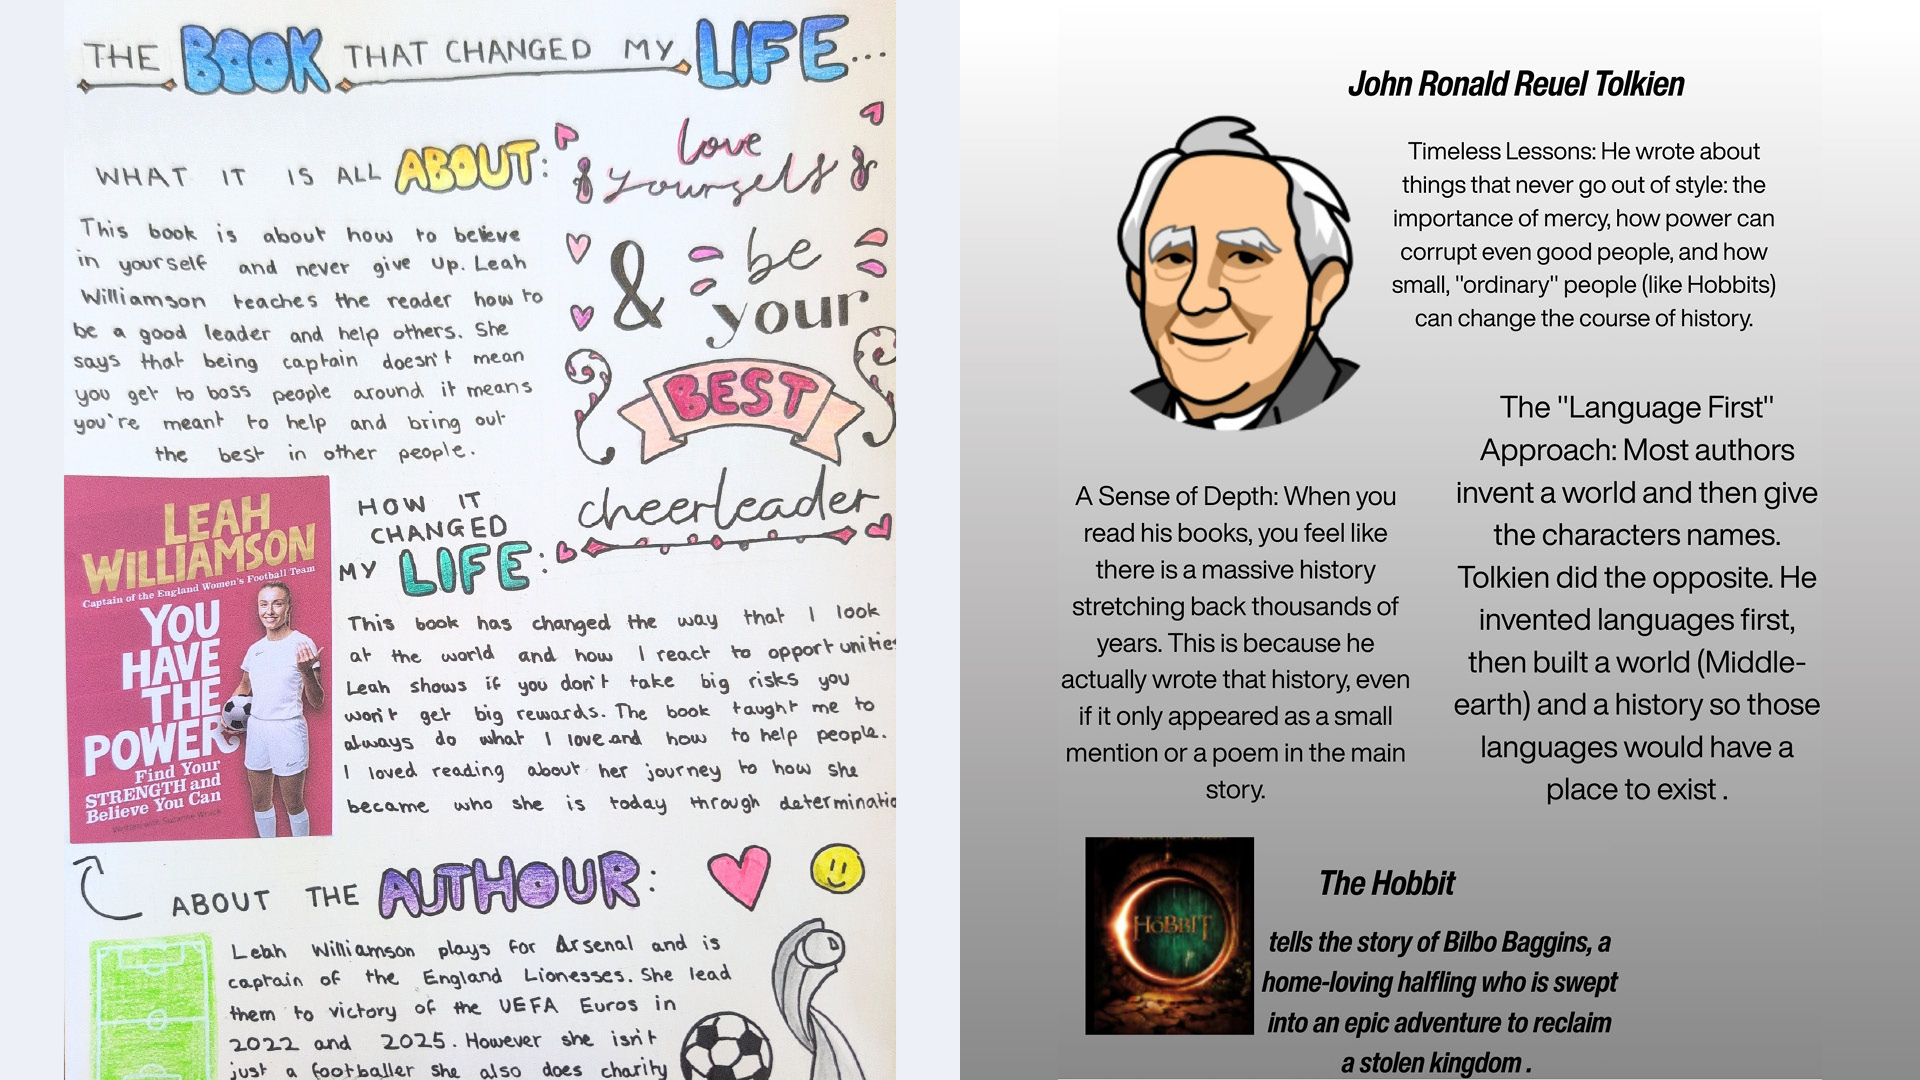 THE BOOK THAT CHANGED MY LIFE...
WHAT IT IS ALL ABOUT:
This book is about how to believe
in yourself and never give up. Leah
Williamson teaches the reader how to
be a good leader and help others. She
says that being captain doesn't mean
you get to boss people around it means
you're meant to help and bring out
the best in other people.
love
yourself
& be
your
BEST
cheerleader
LEAH
WILLIAMSON
Captain of the England Women's Football Team
YOU
HAVE
THE
POWER
Find Your
STRENGTH and
Believe You Can
Written with Suzanne Wrack
HOW IT
CHANGED
MY LIFE:
This book has changed the way that I look
at the world and how I react to opportunities
Leah shows if you don't take big risks you
won't get big rewards. The book taught me to
always do what I love and how to help people.
I loved reading about her journey to how she
became who she is today through determinatio
ABOUT THE AUTHOUR:
Leah Williamson plays for Arsenal and is
captain of the England Lionesses. She lead
them to victory of the UEFA Euros in
2022 and 2025. However she isn't
just a footballer she also does charity
John Ronald Reuel Tolkien
Timeless Lessons: He wrote about
things that never go out of style: the
importance of mercy, how power can
corrupt even good people, and how
small, "ordinary" people (like Hobbits)
can change the course of history.
The "Language First"
Approach: Most authors
invent a world and then give
the characters names.
Tolkien did the opposite. He
invented languages first,
then built a world (Middle-
earth) and a history so those
languages would have a
place to exist .
A Sense of Depth: When you
read his books, you feel like
there is a massive history
stretching back thousands of
years. This is because he
actually wrote that history, even
if it only appeared as a small
mention or a poem in the main
story.
THE HOBBIT
The Hobbit
tells the story of Bilbo Baggins, a
home-loving halfling who is swept
into an epic adventure to reclaim
a stolen kingdom .